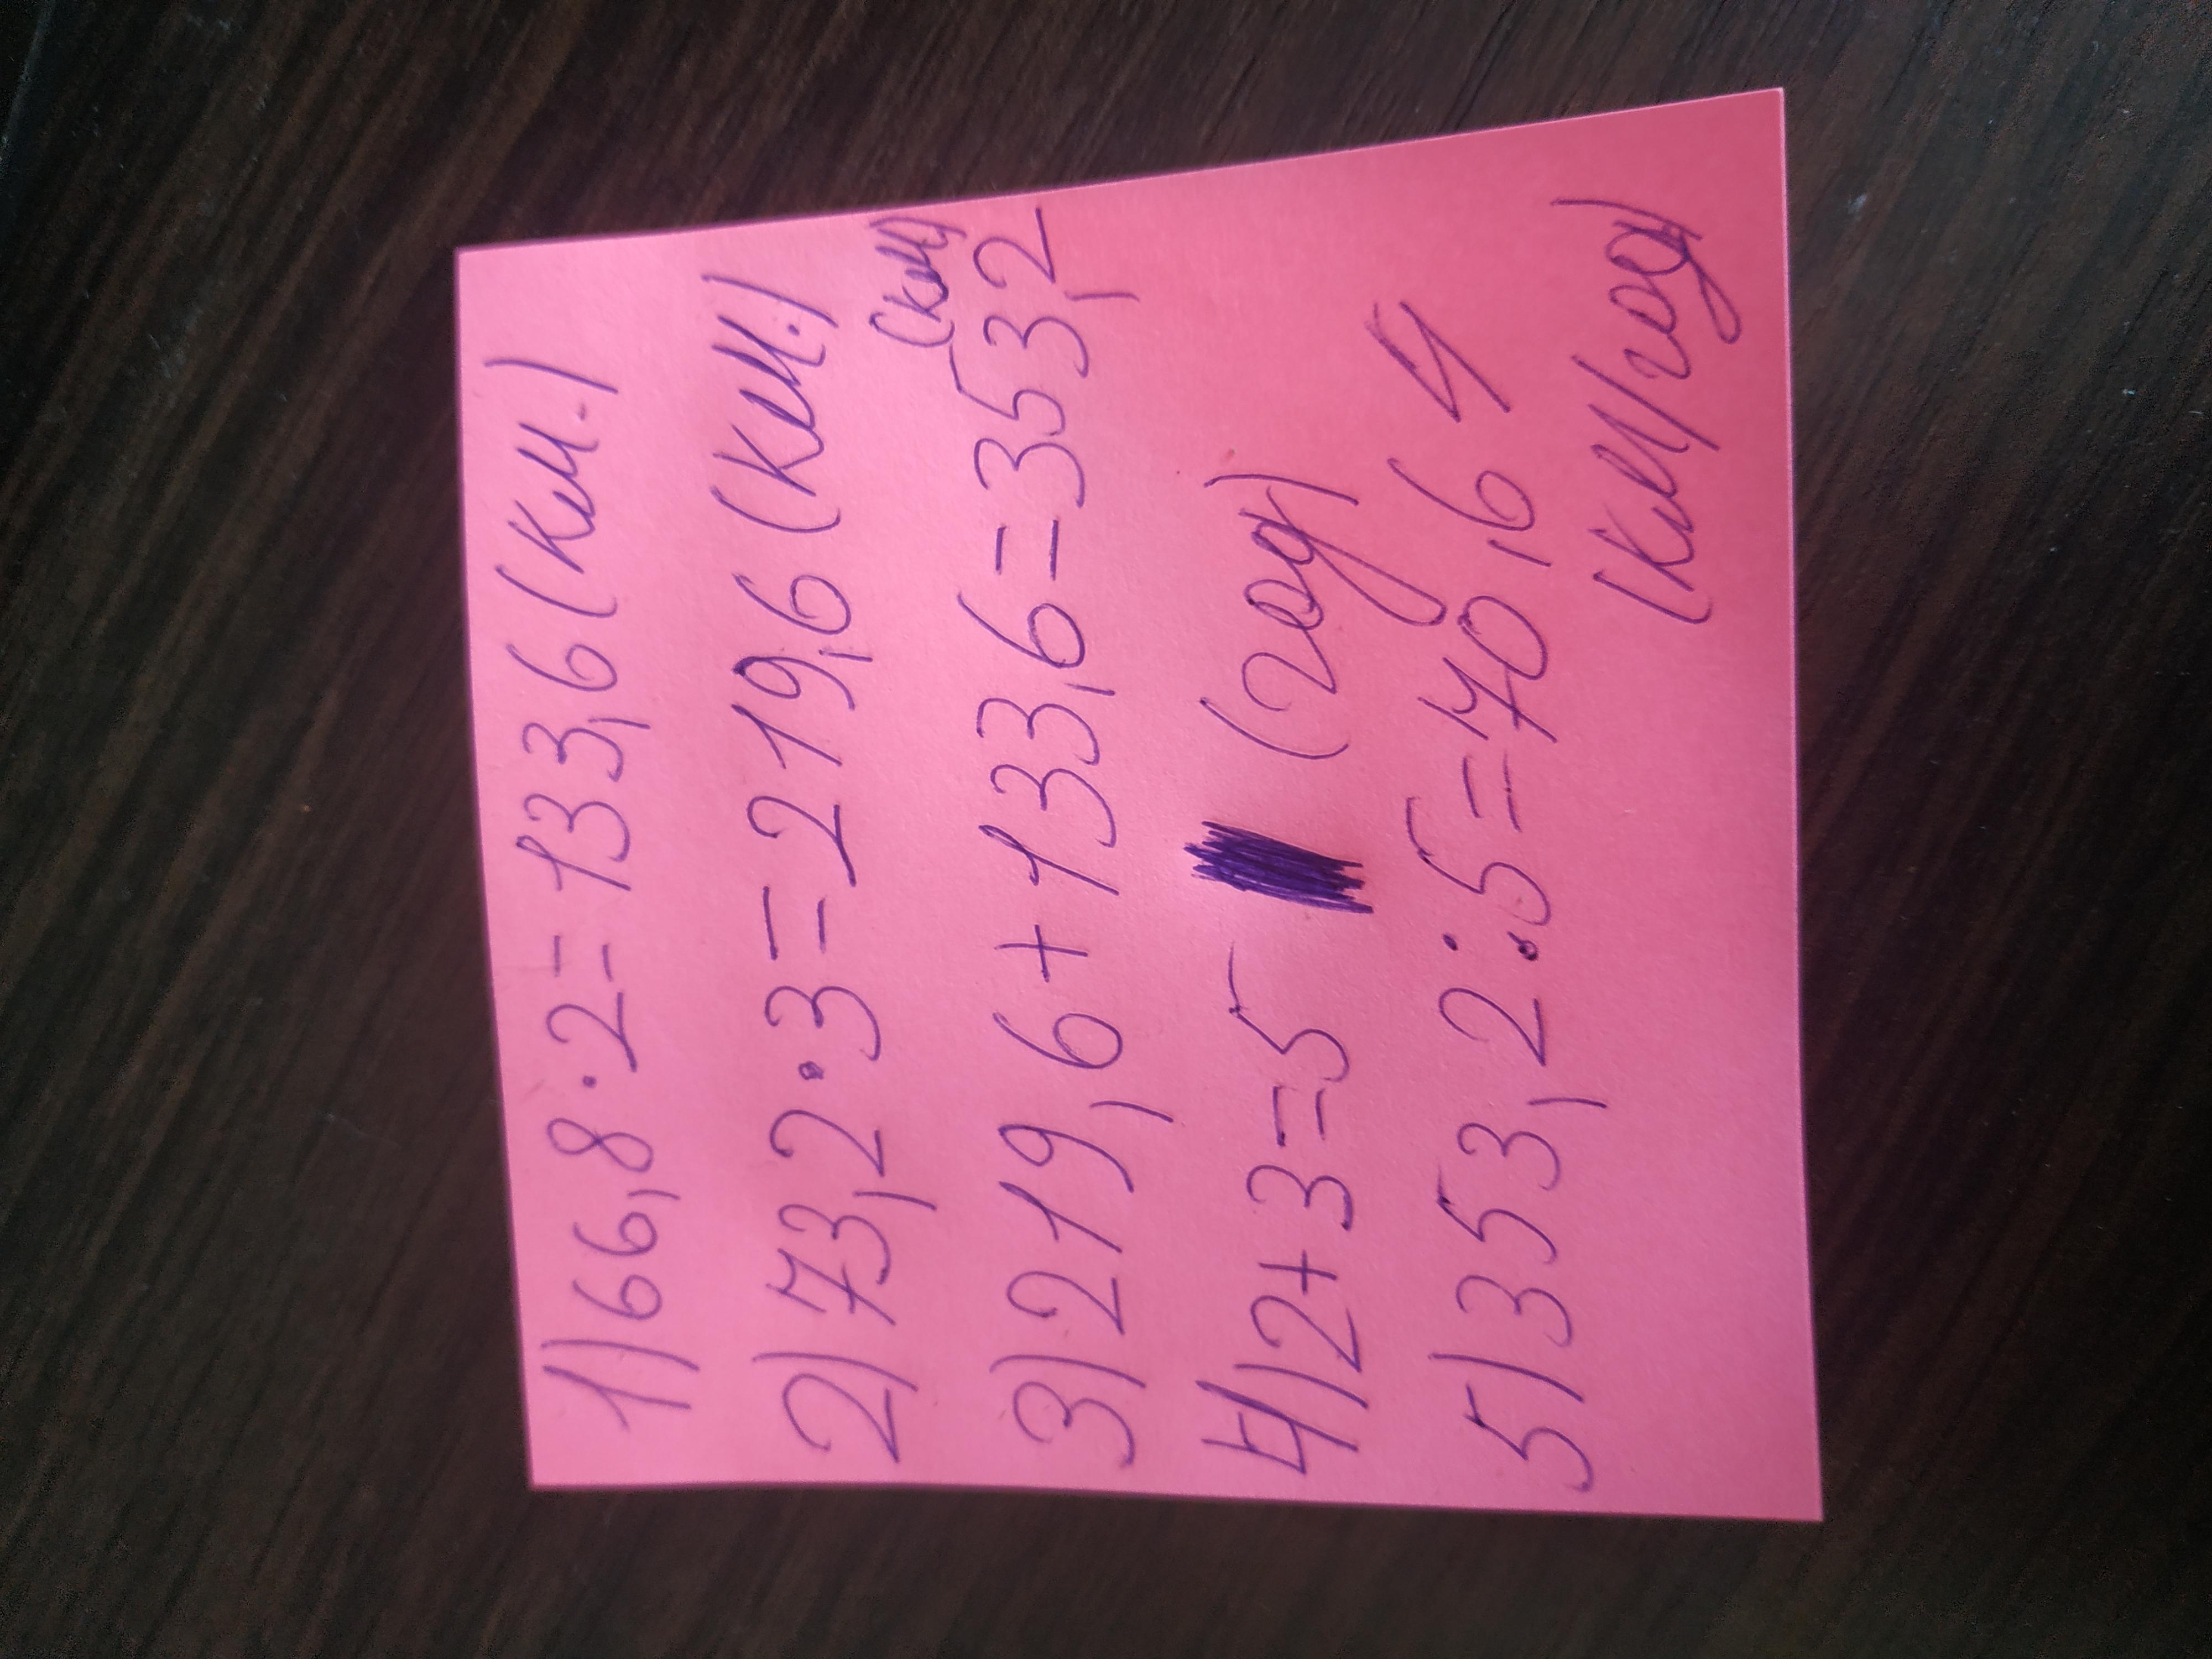 1) 66,8 · 2 = 133,6 (км.)
2) 73,2 · 3 = 219,6 (км.)
(км)
3) 219,6 + 133,6 = 353,2
4) 2 + 3 = 5 (год)
5) 353,2 : 5 = 70,64
(км/год)